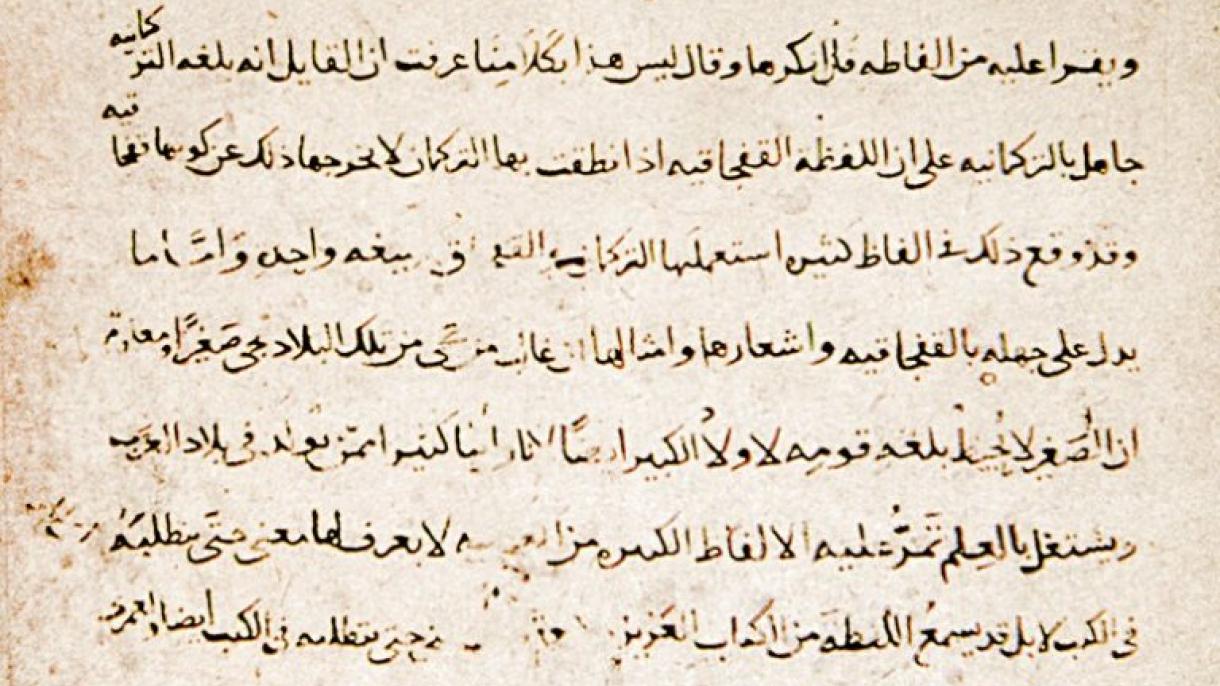 ويقرا عليه من الفاظه فان انكرها وقال ليس هذا بكلامنا عرفت ان القايل انه بلغه التركمانيه
جاهل بالتركمانيه على ان اللفظه القفجاقيه اذا نطقت بها التركمان لا يخرجها ذلك عن كونها قفجاقيه
وقد وقع ذلك في الفاظ كثيره استعملها التركمانيه واحده وامما
يدل على جهله بالقفجاقيه واشعارها وامثالها ان غالب من يجى من تلك البلاد يجى صغيرا ومعلوم
ان الصغير لا يحيط بلغه قومه لا ولا الكبير ايضا راينا كثيرا ممن تولد في بلاد العرب
ويشتغل بالعلم تمر عليه الالفاظ الكثيره من العربيه لا يعرف لها معنى حتى يتطلبه
في الكتب لا بل قد يسمع اللفظه من الكتاب العزيز حتى يتطلبه في الكتب ايضا